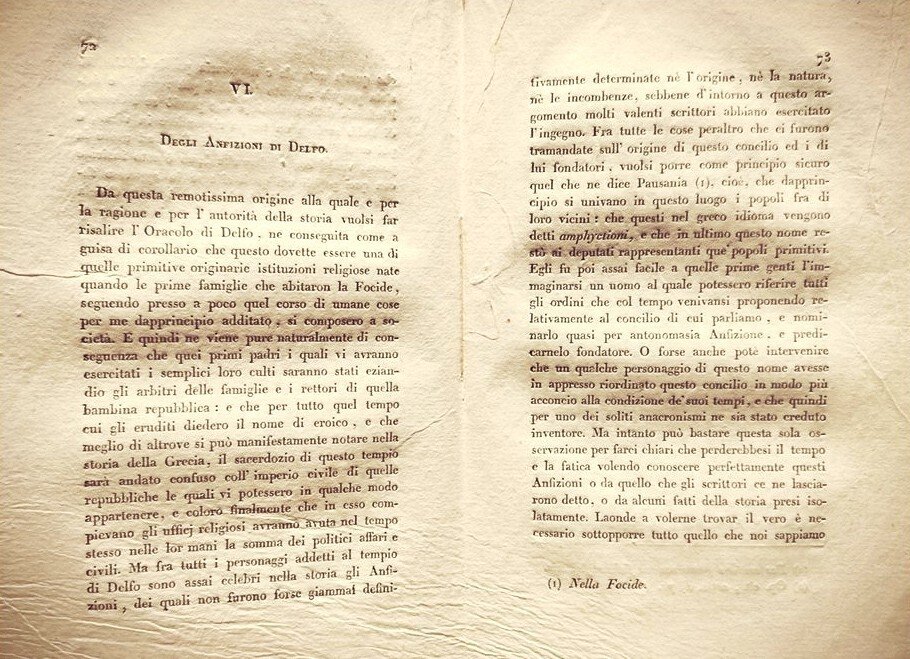 72
VI.
DEGLI ANFIZIONI DI DELFO.
Da questa remotissima origine alla quale e per
la ragione e per l' autorità della storia vuolsi far
risalire l' Oracolo di Delfo, ne conseguita come a
guisa di corollario che questo dovette essere una di
quelle primitive originarie istituzioni religiose nate
quando le prime famiglie che abitaron la Focide,
seguendo presso a poco quel corso di umane cose
per me dapprincipio additato, si composero a so-
cietà. E quindi ne viene pure naturalmente di con-
seguenza che quei primi padri i quali vi avranno
esercitati i semplici loro culti saranno stati ezian-
dio gli arbitri delle famiglie e i rettori di quella
bambina repubblica : e che per tutto quel tempo
cui gli eruditi diedero il nome di eroico, e che
meglio di altrove si può manifestamente notare nella
storia della Grecia, il sacerdozio di questo tempio
sarà andato confuso coll' imperio civile di quelle
repubbliche le quali vi potessero in qualche modo
appartenere, e coloro finalmente che in esso com-
pievano gli ufficj religiosi avranno avuta nel tempo
stesso nelle lor mani la somma dei politici affari e
civili. Ma fra tutti i personaggi addetti al tempio
di Delfo sono assai celebri nella storia gli Anfi-
zioni, dei quali non furono forse giammai defini-
73
tivamente determinate nè l'origine, nè la natura,
nè le incombenze, sebbene d'intorno a questo ar-
gomento molti valenti scrittori abbiano esercitato
l'ingegno. Fra tutte le cose peraltro che ci furono
tramandate sull' origine di questo concilio ed i di
lui fondatori, vuolsi porre come principio sicuro
quel che ne dice Pausania (1), cioè, che dapprin-
cipio si univano in questo luogo i popoli fra di
loro vicini : che questi nel greco idioma vengono
detti amphyctioni, e che in ultimo questo nome re-
stò ai deputati rappresentanti que' popoli primitivi.
Egli fu poi assai facile a quelle prime genti l'im-
maginarsi un uomo al quale potessero riferire tutti
gli ordini che col tempo venivansi proponendo re-
lativamente al concilio di cui parliamo, e nomi-
narlo quasi per antonomasia Anfizione, e predi-
carnelo fondatore. O forse anche potè intervenire
che un qualche personaggio di questo nome avesse
in appresso riordinato questo concilio in modo più
acconcio alla condizione de' suoi tempi, e che quindi
per uno dei soliti anacronismi ne sia stato creduto
inventore. Ma intanto può bastare questa sola os-
servazione per farci chiari che perderebbesi il tempo
e la fatica volendo conoscere perfettamente questi
Anfizioni o da quello che gli scrittori ce ne lascia-
rono detto, o da alcuni fatti della storia presi iso-
latamente. Laonde a volerne trovar il vero è ne-
cessario sottopporre tutto quello che noi sappiamo
(1) Nella Focide.